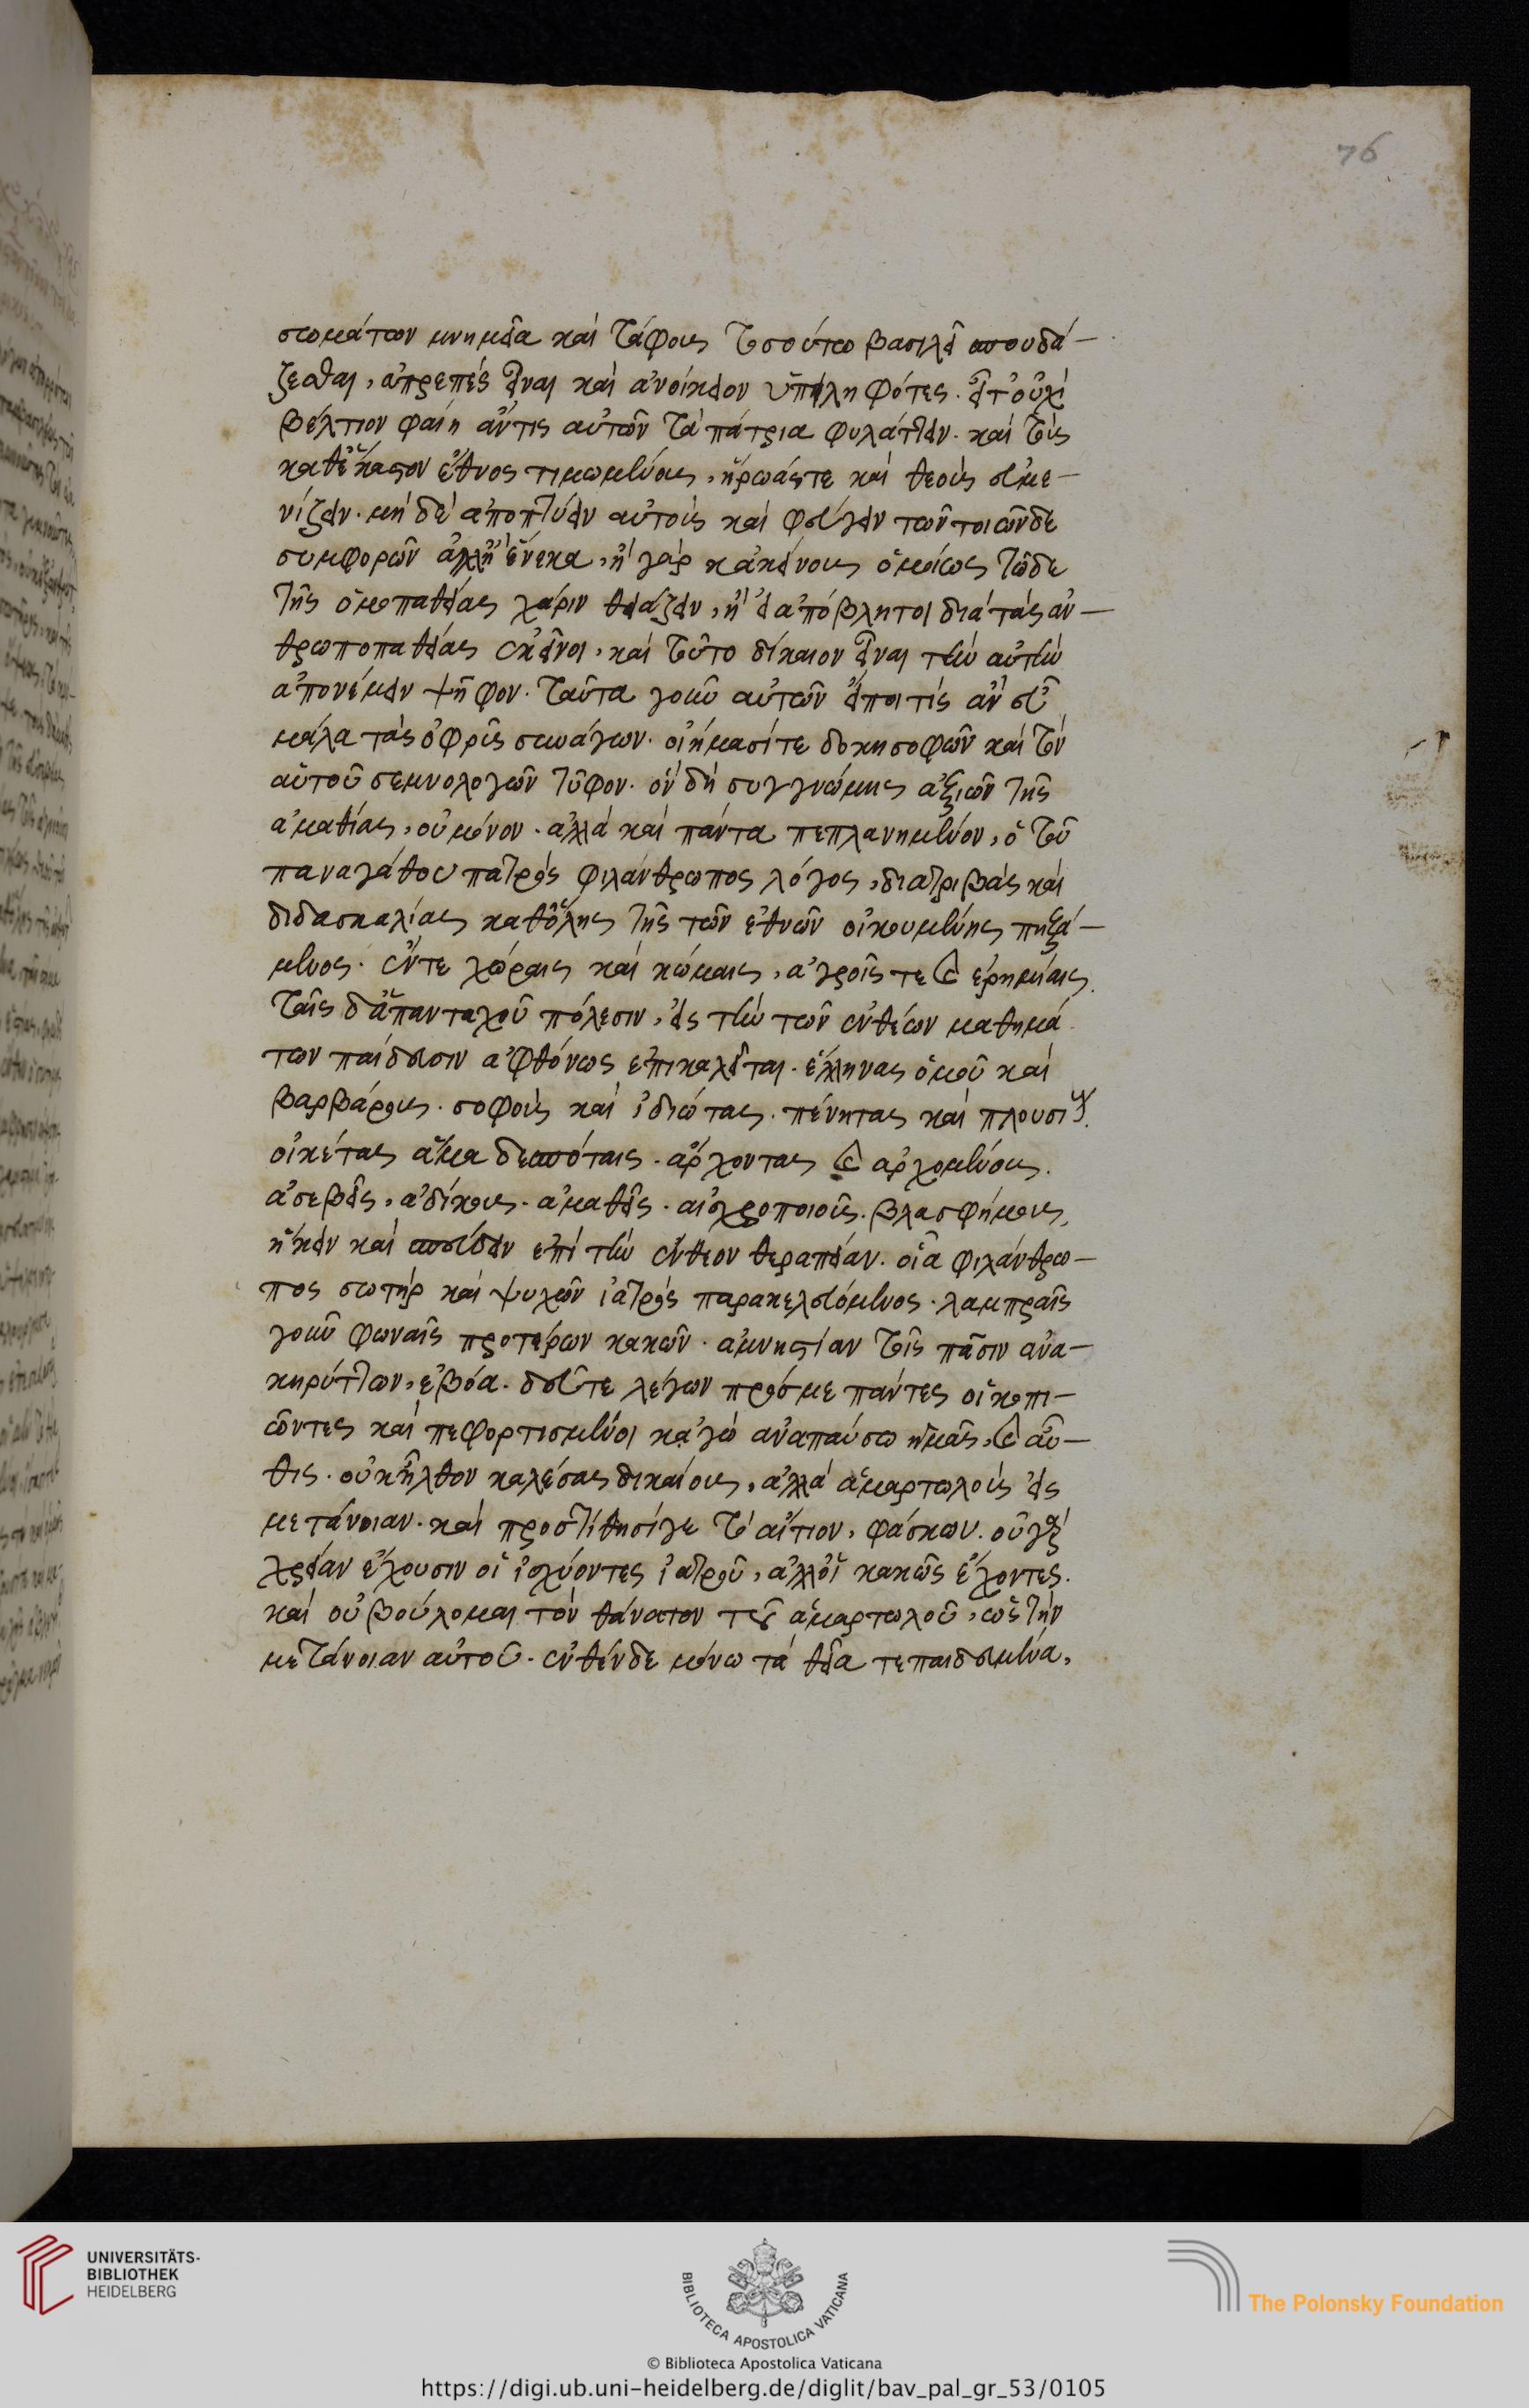 76
σωμάτων μνημεῖα καὶ τάφους τοσούτω βασιλεῖ σπουδά-
ζεσθαι, ἀπρεπὲς εἶναι καὶ ἀνοίκειον ὑπειληφότες. εἶτ' οὐχὶ
βέλτιον φαίη ἄν τις αὐτῶν τὰ πάτρια φυλάττειν. καὶ τοὺς
καθ' ἕκαστον ἔθνος τιμωμένους, ἥρωάς τε καὶ θεοὺς εὐμε-
νίζειν. μὴ δὲ ἀποπτύειν αὐτοὺς καὶ φεύγειν τῶν τοιῶνδε
συμφορῶν ἀλλ' ἢ ἕνεκα, ἢ γὰρ κἀκείνους ὁμοίως τῶδε
τῆς ὁμοπαθείας χάριν θειάζειν, ἢ εἰ ἀπόβλητοι διὰ τὰς ἀν-
θρωποπαθείας ἐκεῖνοι, καὶ τοῦτο δίκαιον εἶναι τὴν αὐτὴν
ἀπονέμειν ψῆφον. ταῦτα γοῦν αὐτῶν εἴποι τίς ἂν εὖ
μάλα τὰς ὀφρῦς συνάγων. οἰήμασί τε δοκησοφῶν καὶ τὸν
αὐτοῦ σεμνολογῶν τῦφον. ὃν δὴ συγγνώμης ἀξιῶν τῆς
ἀμαθίας, οὐ μόνον. ἀλλὰ καὶ πάντα πεπλανημένον, ὁ τοῦ
παναγάθου πατρὸς φιλάνθρωπος λόγος, διατριβὰς καὶ
διδασκαλίας καθόλης τῆς τῶν ἐθνῶν οἰκουμένης πηξά-
μενος. ἔν τε χώραις καὶ κώμαις, ἀγροῖς τε καὶ ἐρημίαις.
ταῖς δ' ἁπανταχοῦ πόλεσιν, εἰς τὴν τῶν ἐνθέων μαθημά
των παίδευσιν ἀφθόνως ἐπικαλεῖται. ἕλληνας ὁμοῦ καὶ
βαρβάρους. σοφοὺς καὶ ἰδιώτας. πένητας καὶ πλουσίους.
οἰκέτας ἅμα δεσπόταις. ἄρχοντας καὶ ἀρχομένους.
ἀσεβεῖς, ἀδίκους. ἀμαθεῖς. αἰσχροποιοῦς. βλασφήμους,
ἥκειν καὶ σπεύδειν ἐπὶ τὴν ἔνθεον θεραπείαν. οἷα φιλάνθρω-
πος σωτὴρ καὶ ψυχῶν ἰατρὸς παρακελευόμενος. λαμπραῖς
γοῦν φωναῖς προτέρων κακῶν. ἀμνηστίαν τοῖς πᾶσιν ἀνα-
κηρύττων, ἐβόα. δεῦτε λέγων πρός με πάντες οἱ κοπι-
ῶντες καὶ πεφορτισμένοι κἀγὼ ἀναπαύσω ἡμᾶς, καὶ αὖ-
θις. οὐκ ἦλθον καλέσας δικαίους, ἀλλὰ ἁμαρτωλοὺς εἰς
μετάνοιαν. καὶ προστίθησί γε τὸ αἴτιον, φάσκων. οὐ γὰρ
χρείαν ἔχουσιν οἱ ἰσχύοντες ἰατροῦ, ἀλλ' οἱ κακῶς ἔχοντες.
καὶ οὐ βούλομαι τὸν θάνατον τοῦ ἁμαρτωλοῦ, ὡς τὴν
μετάνοιαν αὐτοῦ. ἐνθένδε μόνω τὰ θεῖα πεπαιδευμένα,
UNIVERSITÄTS-
BIBLIOTHEK
HEIDELBERG
BIBLIOTECA APOSTOLICA VATICANA
© Biblioteca Apostolica Vaticana
The Polonsky Foundation
https://digi.ub.uni-heidelberg.de/diglit/bav_pal_gr_53/0105